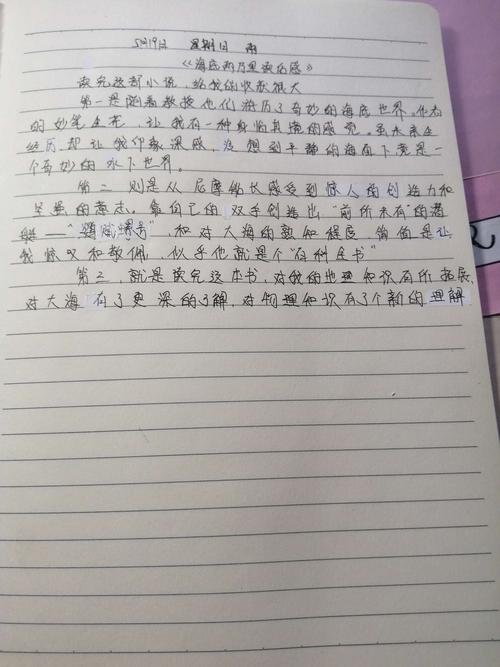 5月19日 星期日 雨
《海底两万里读后感》
读完这部小说,给我的收获很大
第一是随着教授他们游历了奇妙的海底世界。作者
的妙笔生花,让我有一种身临其境的感觉。虽未亲生
经历,却让我印象深感,没想到平静的海面下竟是一
个奇妙的水下世界。
第二,则是从尼摩船长感受到惊人的创造力和
坚毅的意志。靠自己的双手创造出"前所未有"的潜
艇——"鹦鹉螺号",和对大海的熟知程度,简值是让
我惊叹和敬佩,似乎他就是个"百科全书"
第三,就是读完这本书,对我的地理知识有所拓展,
对大海有了更深的了解,对物理知识有了个新的理解
2